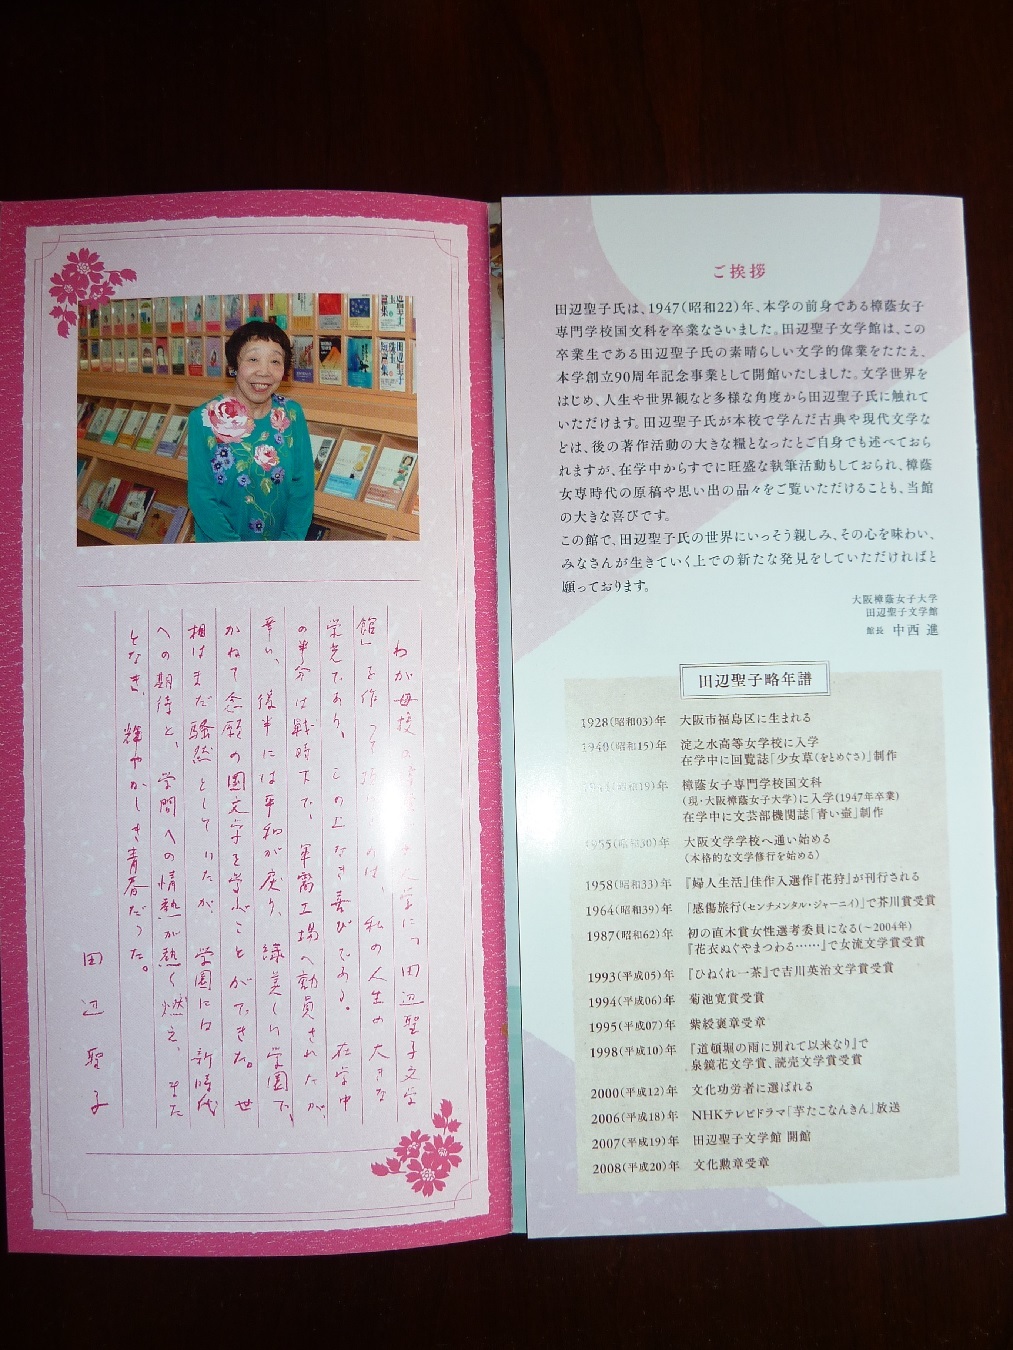 わが母校の
大学に「田辺聖子文学
館」を作って
のは、私の人生の大きな
栄光であり、この上なき喜びである。在学中
の半分は戦時下で、軍需工場へ動員されたが、
幸い、後半には平和が戻り、緑美しい学園で、
かねて念願の国文学を学ぶことができた。世
相はまだ騒然としていたが、学園には新時代
への期待と、学問への情熱が熱く燃え、また
となき、輝やかしき青春だった。
田辺聖子
ご挨拶
田辺聖子氏は、1947(昭和22)年、本学の前身である樟蔭女子
専門学校国文科を卒業なさいました。田辺聖子文学館は、この
卒業生である田辺聖子氏の素晴らしい文学的偉業をたたえ、
本学創立90周年記念事業として開館いたしました。文学世界を
はじめ、人生や世界観など多様な角度から田辺聖子氏に触れて
いただけます。田辺聖子氏が本校で学んだ古典や現代文学な
どは、後の著作活動の大きな糧となったとご自身でも述べておら
れますが、在学中からすでに旺盛な執筆活動もしておられ、樟蔭
女専時代の原稿や思い出の品々をご覧いただけることも、当館
の大きな喜びです。
この館で、田辺聖子氏の世界にいっそう親しみ、その心を味わい、
みなさんが生きていく上での新たな発見をしていただければと
願っております。
大阪樟蔭女子大学
田辺聖子文学館
館長 中西 進
田辺聖子略年譜
1928(昭和03)年 大阪市福島区に生まれる
1940(昭和15)年 淀之水高等女学校に入学
在学中に回覧誌「少女草(をとめぐさ)」制作
1944(昭和19)年 樟蔭女子専門学校国文科
(現・大阪樟蔭女子大学)に入学(1947年卒業)
在学中に文芸部機関誌「青い壺」制作
1955(昭和30)年 大阪文学学校へ通い始める
(本格的な文学修行を始める)
1958(昭和33)年 『婦人生活』佳作入選作『花狩』が刊行される
1964(昭和39)年 「感傷旅行(センチメンタル・ジャーニイ)」で芥川賞受賞
1987(昭和62)年 初の直木賞女性選考委員になる(~2004年)
『花衣ぬぐやまつわる……』で女流文学賞受賞
1993(平成05)年 『ひねくれ一茶』で吉川英治文学賞受賞
1994(平成06)年 菊池寛賞受賞
1995(平成07)年 紫綬褒章受章
1998(平成10)年 『道頓堀の雨に別れて以来なり』で
泉鏡花文学賞、読売文学賞受賞
2000(平成12)年 文化功労者に選ばれる
2006(平成18)年 NHKテレビドラマ「芋たこなんきん」放送
2007(平成19)年 田辺聖子文学館 開館
2008(平成20)年 文化勲章受章